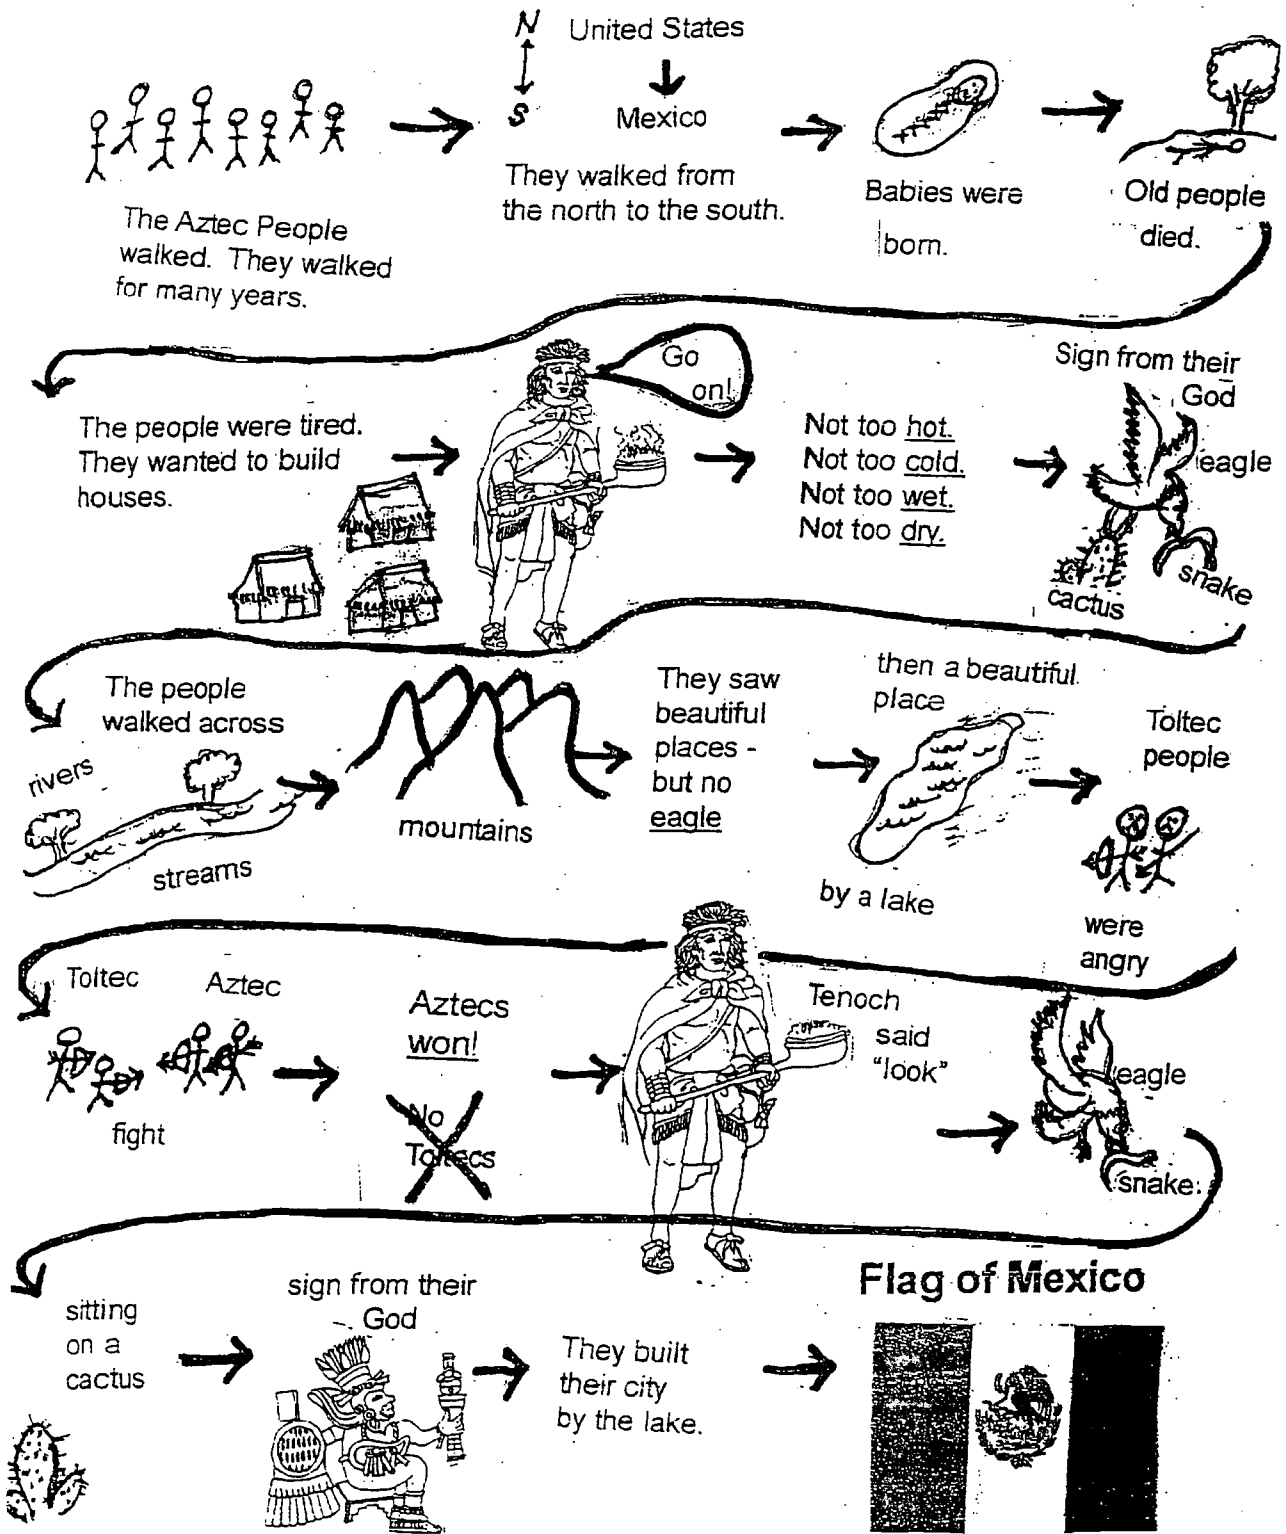 N
S
United States
Mexico
The Aztec People
walked. They walked
for many years.
They walked from
the north to the south.
Babies were
born.
Old people
died.
The people were tired.
They wanted to build
houses.
Go
on!
Not too hot.
Not too cold.
Not too wet.
Not too dry.
Sign from their
God
eagle
snake
cactus
The people
walked across
rivers
streams
mountains
They saw
beautiful
places -
but no
eagle
then a beautiful
place
by a lake
Toltec
people
were
angry
Toltec
Aztec
fight
Aztecs
won!
No
Toltecs
Tenoch
said
"look"
eagle
snake.
sitting
on a
cactus
sign from their
God
They built
their city
by the lake.
Flag of Mexico